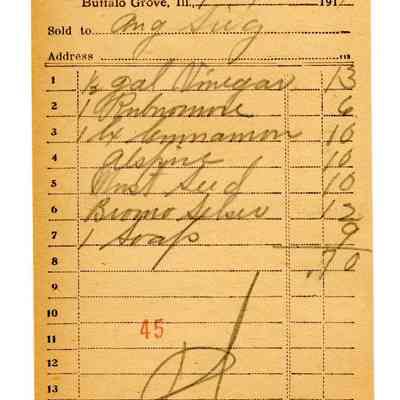 Buffalo Grove, Ill., 191
Sold to Aug Sieg
Address
1 ½ gal Vinegar 13
2 1 Rubnomore 6
3 1 bx Cinnamon 10
4 Aspirine 10
5 Must Seed 10
6 Bromo Selser 12
7 1 Soap 9
8 .70
9
10
11 45
12
13